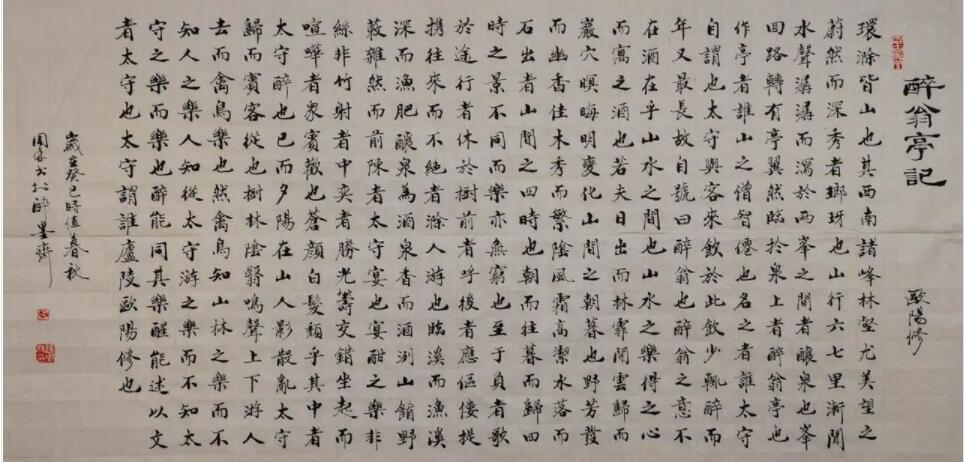 醉翁亭記
歐陽修
環滁皆山也其西南諸峰林壑尤美望之
蔚然而深秀者瑯琊也山行六七里漸聞
水聲潺潺而瀉於兩峯之間者釀泉也峯
回路轉有亭翼然臨於泉上者醉翁亭也
作亭者誰山之僧智僊也名之者誰太守
自謂也太守與客來飲於此飲少輒醉而
年又最長故自號曰醉翁也醉翁之意不
在酒在乎山水之間也山水之樂得之心
而寓之酒也若夫日出而林霏開雲歸而
巖穴暝晦明變化山間之朝暮也野芳發
而幽香佳木秀而繁陰風霜高潔水落而
石出者山間之四時也朝而往暮而歸四
時之景不同而樂亦無窮也至于負者歌
於途行者休於樹前者呼後者應傴僂提
攜往來而不絕者滁人游也臨溪而漁溪
深而漁肥釀泉為酒泉香而酒洌山餚野
蔌雜然而前陳者太守宴也宴酣之樂非
絲非竹射者中奕者勝光籌交錯坐起而
喧嘩者眾賓歡也蒼顏白髮頹乎其中者
太守醉也已而夕陽在山人影散亂太守
歸而賓客從也樹林陰翳鳴聲上下游人
去而禽鳥樂也然禽鳥知山林之樂而不
知人之樂人知從太守游之樂而不知太
守之樂而樂也醉能同其樂醒能述以文
者太守也太守謂誰廬陵歐陽修也
歲在癸巳時值春秋
書於醉墨齋